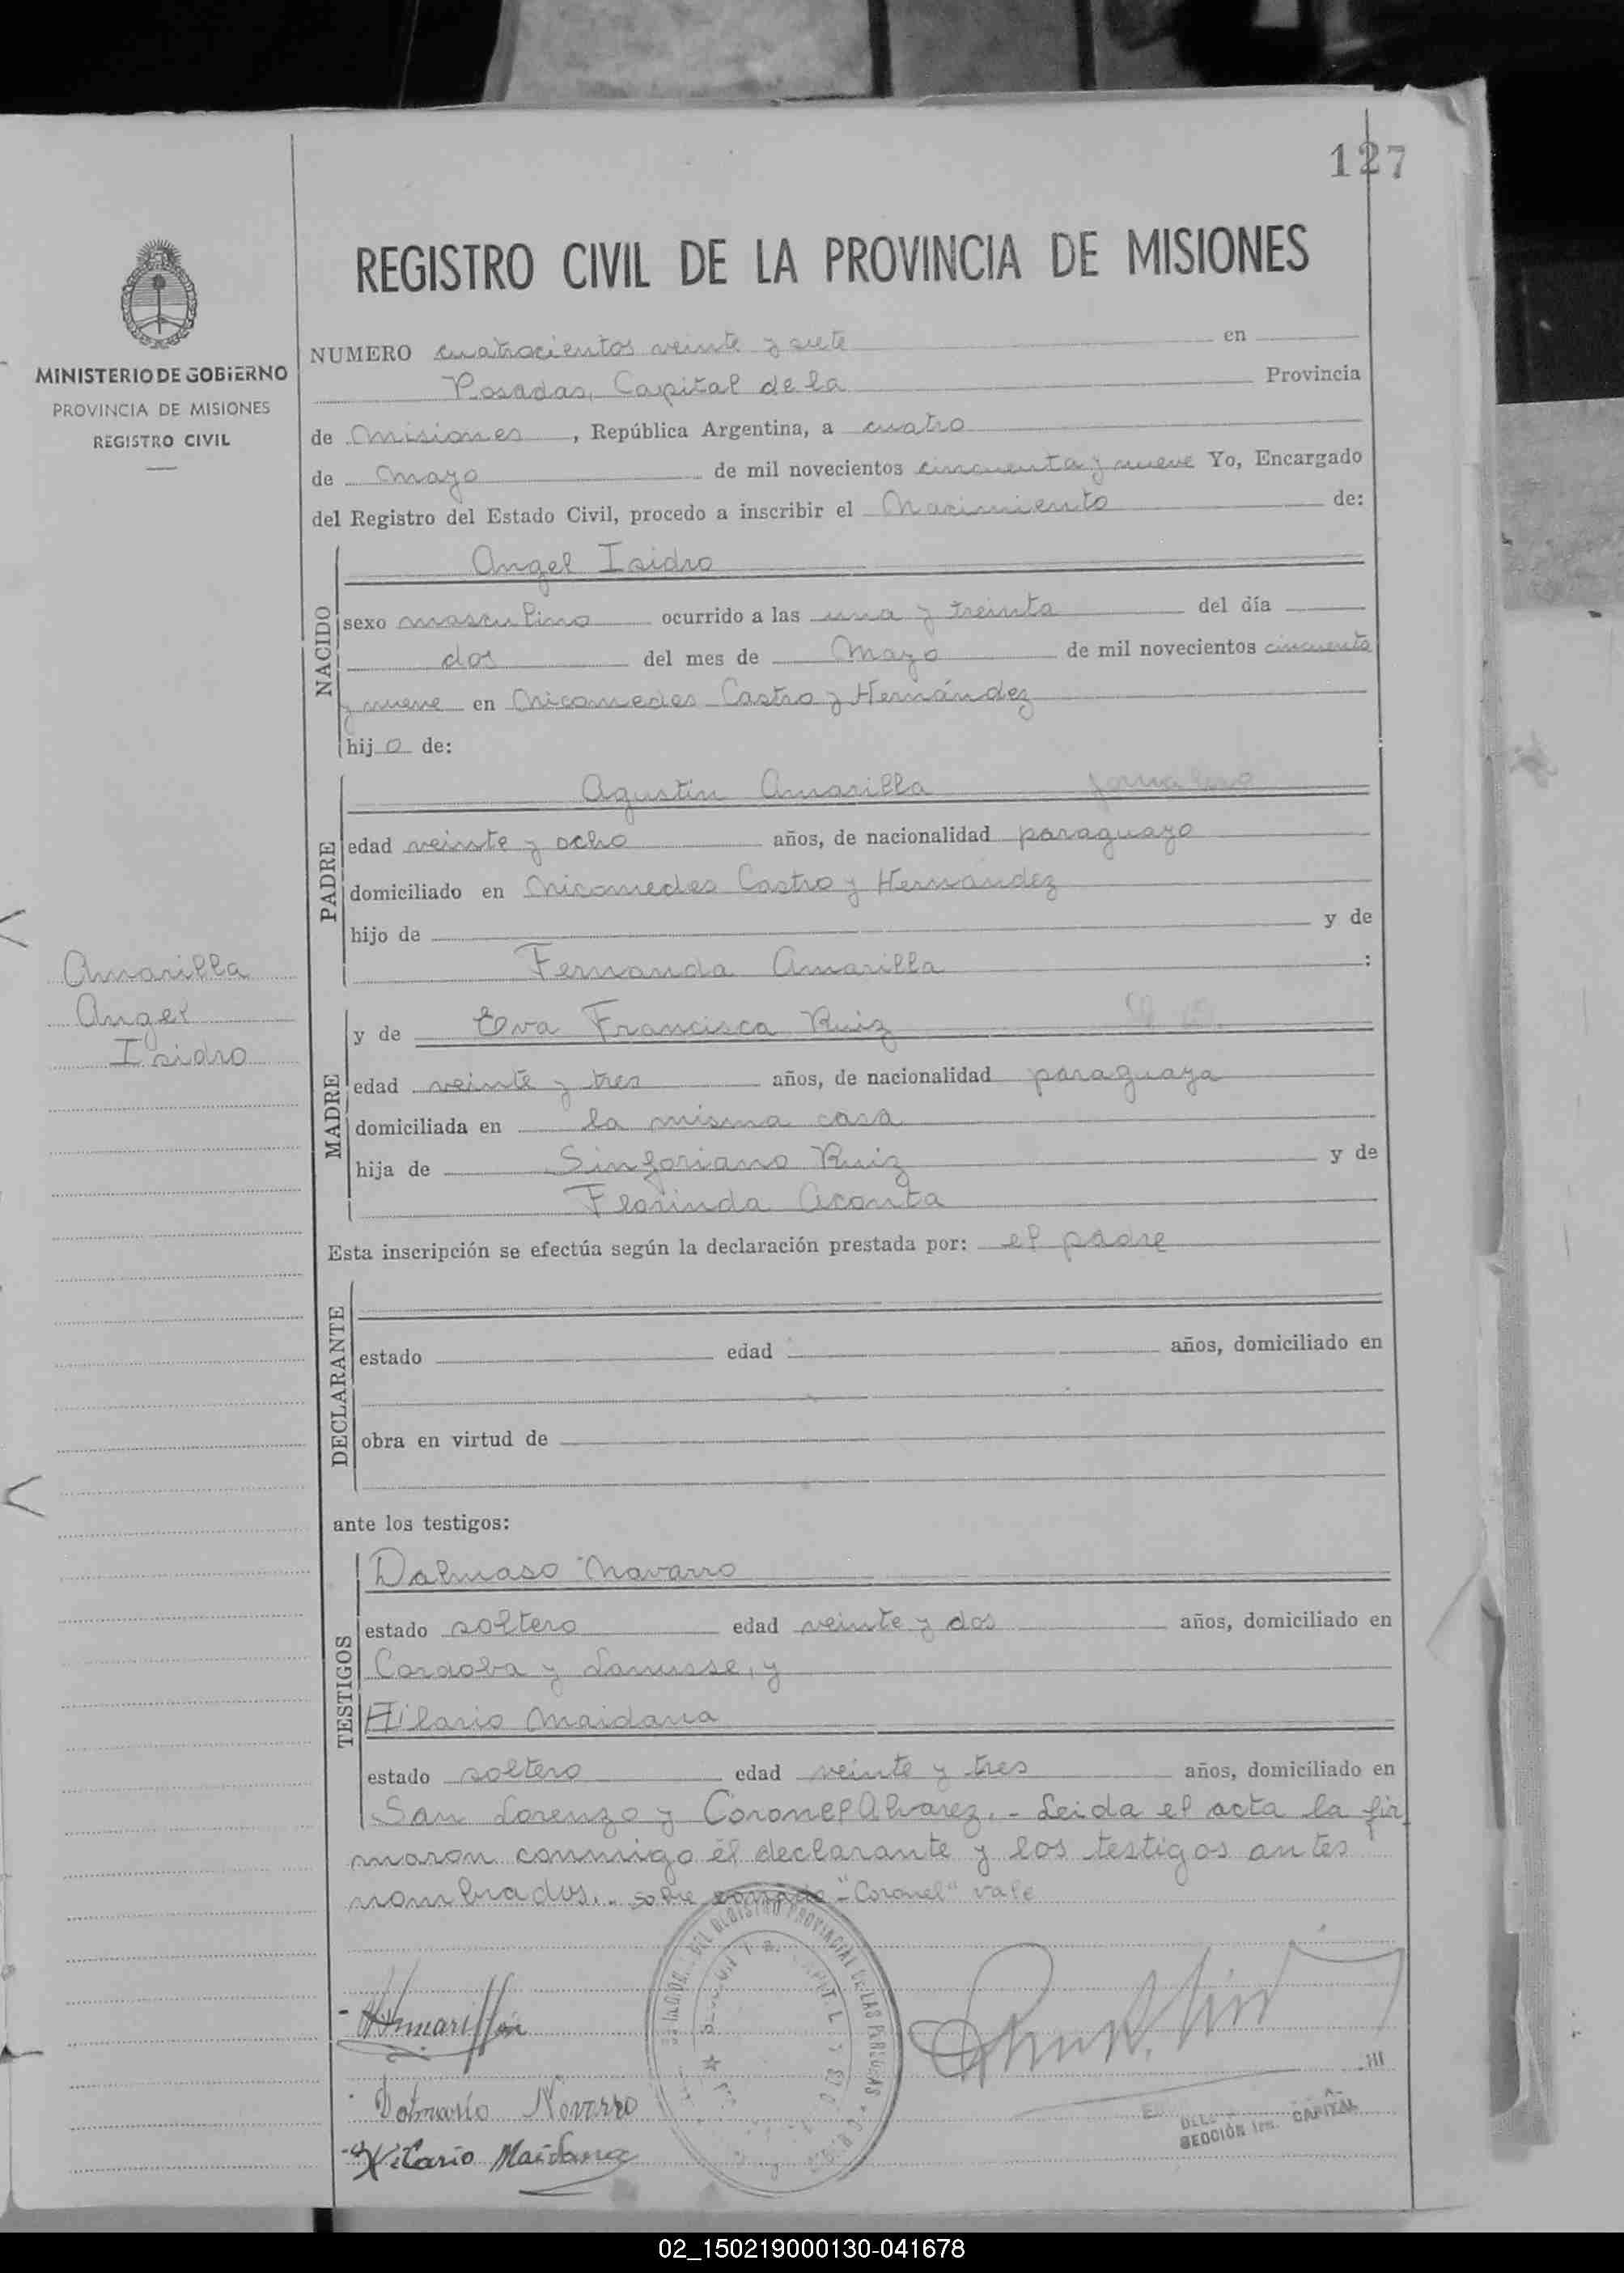 127
REGISTRO CIVIL DE LA PROVINCIA DE MISIONES
MINISTERIO DE GOBIERNO
PROVINCIA DE MISIONES
REGISTRO CIVIL
NUMERO cuatrocientos veinte y siete en
Posadas, Capital de la Provincia
de Misiones, República Argentina, a cuatro
de Mayo de mil novecientos cincuenta y nueve Yo, Encargado
del Registro del Estado Civil, procedo a inscribir el Nacimiento de:
NACIDO
Angel Isidro
sexo masculino ocurrido a las una y treinta del día
dos del mes de Mayo de mil novecientos cincuenta
y nueve en Nicomedes Castro y Hernández
hijo de:
PADRE
Agustín Amarilla jornalero
edad veinte y ocho años, de nacionalidad paraguayo
domiciliado en Nicomedes Castro y Hernández
hijo de y de
Fernanda Amarilla :
Amarilla
Angel
Isidro
MADRE
y de Eva Francisca Ruiz
edad veinte y tres años, de nacionalidad paraguaya
domiciliada en la misma casa
hija de Sinforiano Ruiz y de
Florinda Acosta
Esta inscripción se efectúa según la declaración prestada por: el padre
DECLARANTE
estado edad años, domiciliado en
obra en virtud de
ante los testigos:
TESTIGOS
Dalmaso Navarro
estado soltero edad veinte y dos años, domiciliado en
Cordoba y Lanusse, y
Hilario Maidana
estado soltero edad veinte y tres años, domiciliado en
San Lorenzo y Coronel Alvarez.- Leida el acta la fir
maron conmigo el declarante y los testigos antes
nombrados.- sobre raspado "Coronel" vale
Amarilla
Navarro
Hilario Maidana
DEL REGISTRO PROVINCIAL DE LAS PERSONAS
SECCIÓN 1ra. CAPITAL
02_150219000130-041678